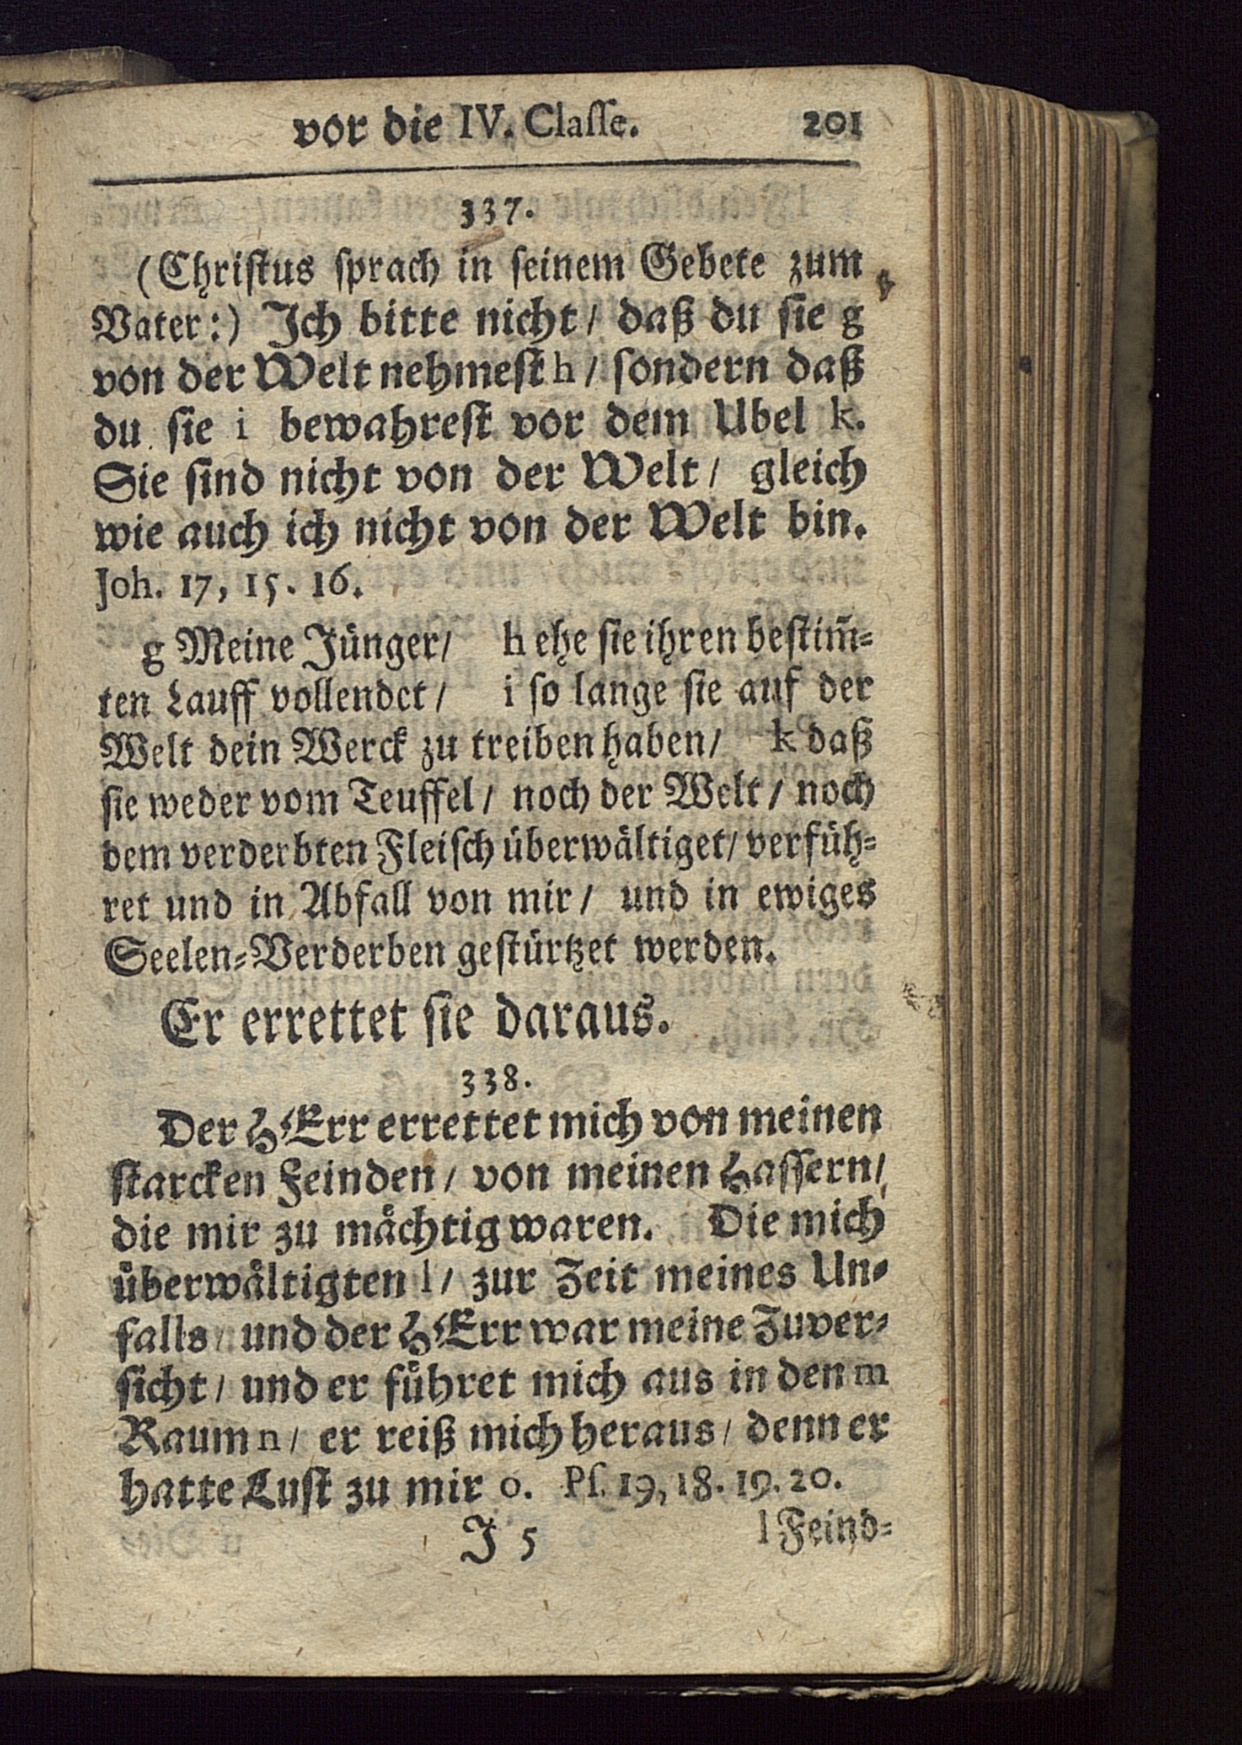 vor die IV. Classe. 201
337.
(Christus sprach in seinem Gebete zum
Vater:) Ich bitte nicht / daß du sie g
von der Welt nehmest h / sondern daß
du sie i bewahrest vor dem Ubel k.
Sie sind nicht von der Welt / gleich
wie auch ich nicht von der Welt bin.
Joh. 17, 15. 16.
g Meine Jünger / h ehe sie ihren bestim̃=
ten Lauff vollendet / i so lange sie auf der
Welt dein Werck zu treiben haben / k daß
sie weder vom Teuffel / noch der Welt / noch
dem verderbten Fleisch überwältiget / verfüh=
ret und in Abfall von mir / und in ewiges
Seelen=Verderben gestürtzet werden.
Er errettet sie daraus.
338.
Der HErr errettet mich von meinen
starcken Feinden / von meinen Hassern /
die mir zu mächtig waren. Die mich
überwältigten l / zur Zeit meines Un=
falls / und der HErr war meine Zuver=
sicht / und er führet mich aus in den m
Raum n / er reiß mich heraus / denn er
hatte Lust zu mir o. Ps. 19, 18. 19. 20.
J 5 l Feind=